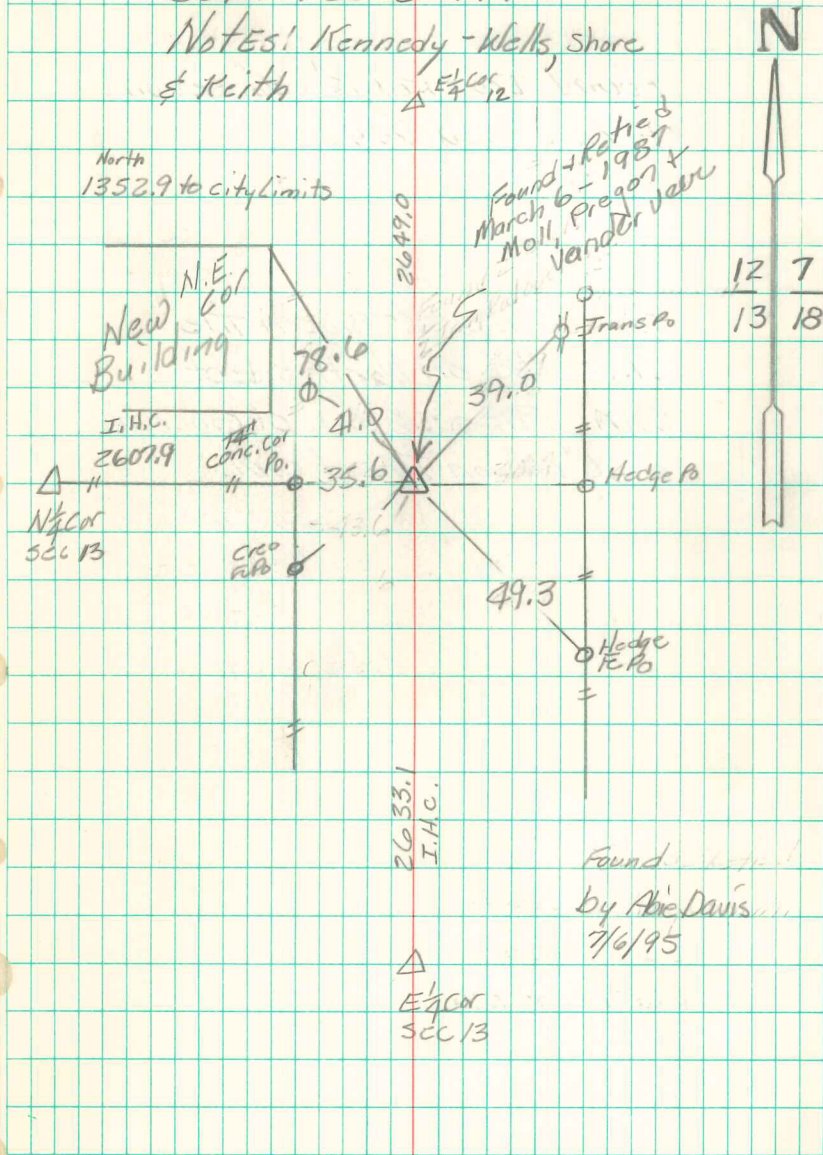 Notes! Kennedy-Wells, Shore
& Keith
N
E 1/4 Cor
12
North
1352.9 to city Limits
Found & Retied
March 6-1987
Moll, Pregon &
Vander Veer
2649.0
12 7
13 18
N.E. Cor
New Building
Trans Po
78.6
39.0
41.0
I.H.C.
2607.9
14" Conc. Cor Po.
35.6
Hedge Po
N 1/4 Cor
Sec 13
Creo
Fe Po
43.6
49.3
Hedge
Fe Po
2633.1
I.H.C.
Found
by Abie Davis
7/6/95
E 1/4 Cor
Sec 13